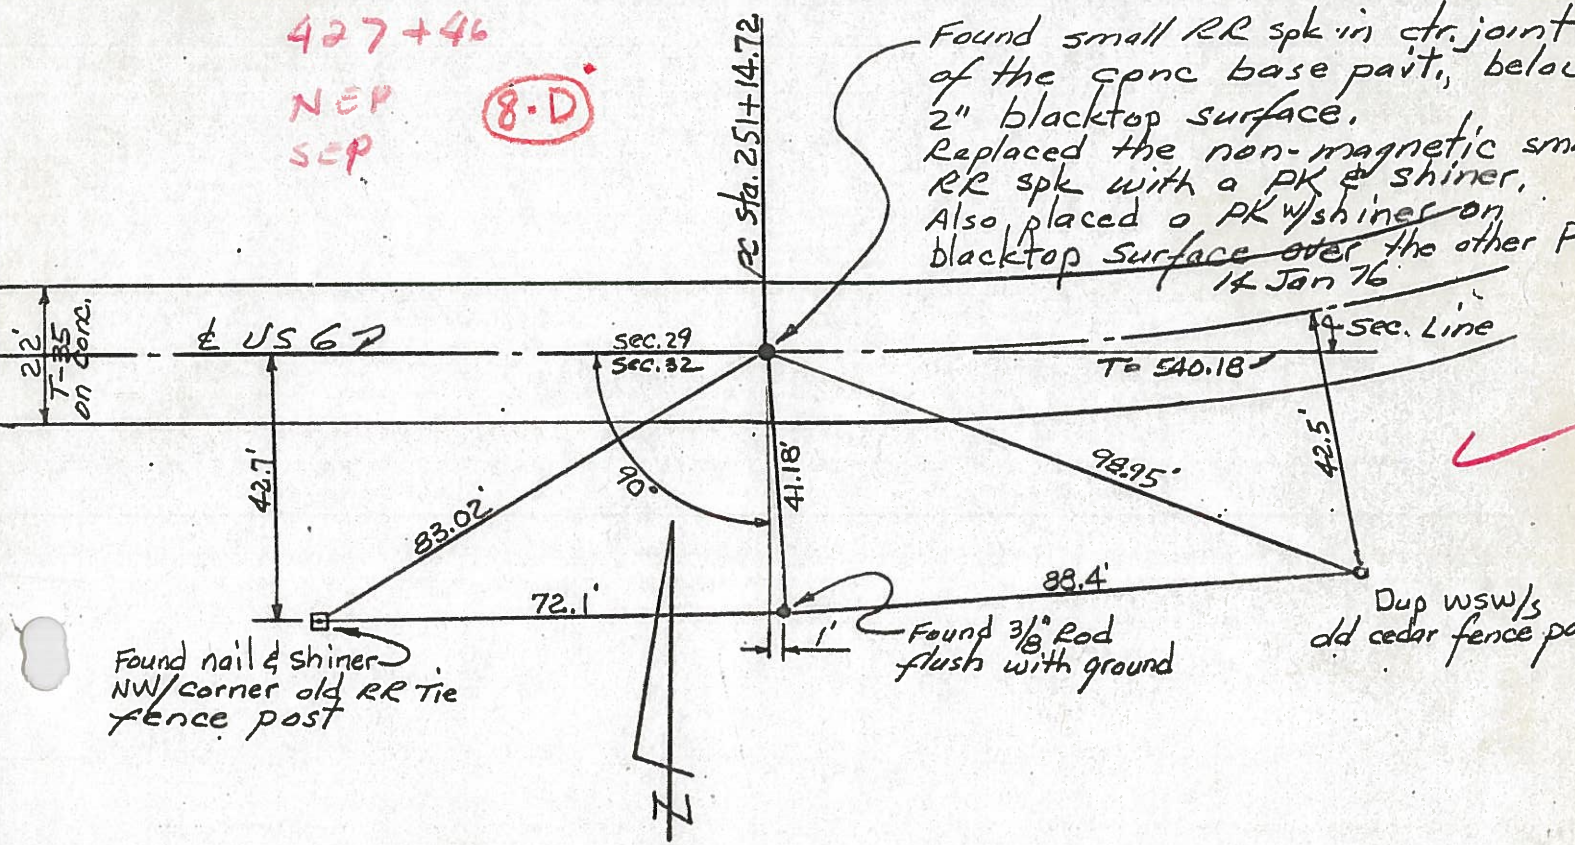 427+46
NEP
SEP
8·D
PC Sta. 251+14.72
Found small RR spk in ctr. joint
of the conc base pavt., below
2" blacktop surface.
Replaced the non-magnetic
RR spk with a PK & shiner.
Also placed a PK w/shiner on
blacktop surface over the other
14 Jan 76
22'
T-35
on Conc.
℄ US 67
Sec. 29
Sec. 32
To 540.18
Sec. Line
42.7'
83.02'
90°
41.18'
98.95'
42.5'
72.1'
88.4'
1'
Found nail & shiner
NW/corner old RR Tie
fence post
Found 3/8" Rod
flush with ground
Dup WSW/s
old cedar fence
N